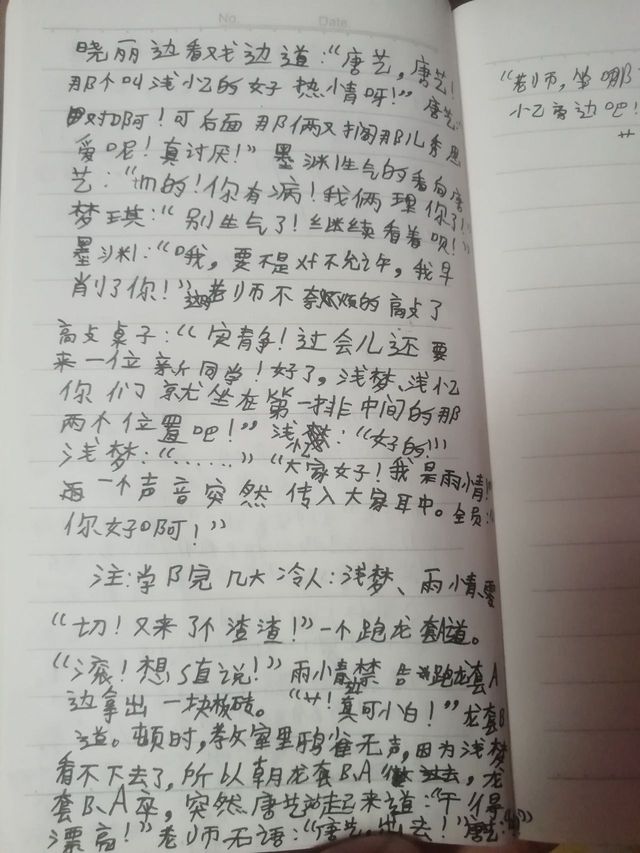 No. Date
晓丽边看戏边道：“唐艺，唐艺！
那个叫浅小忆的好热情呀！”唐艺：“
对啊！可后面那俩又搁那儿秀恩
爱呢！真讨厌！”墨渊生气的看向唐
艺：“他的！你有病！我俩理你了！”
梦琪：“别生气了！继续看着呗！”
墨渊：“哦，要不是xf不允许，我早
削了你！”老师不奈烦的高攴了
高攴桌子：“安静！过会儿还要
来一位新同学！好了，浅梦、浅小忆
你们就坐在第一排中间的那
两个位置吧！”浅小忆：“好的！”
浅梦：“……”“大家好！我是雨小情！”
一个声音突然传入大家耳中。全员：“
你好啊！”
注：学院几大冷人：浅梦、雨小情、墨
“切！又来了个渣渣！”一个跑龙套A道。
“滚！想s直说！”雨小情警告跑龙套A
边拿出一块板砖。“艹！真可小白！”龙套B
道。顿时，教室里鸦雀无声，因为浅梦
看不下去了，所以朝龙套B、A过去，龙
套B、A卒，突然唐艺站起来道：“干得
漂亮！”老师无语：“唐艺，出去！”唐艺：“
“老师，坐哪
小忆旁边吧！
艹